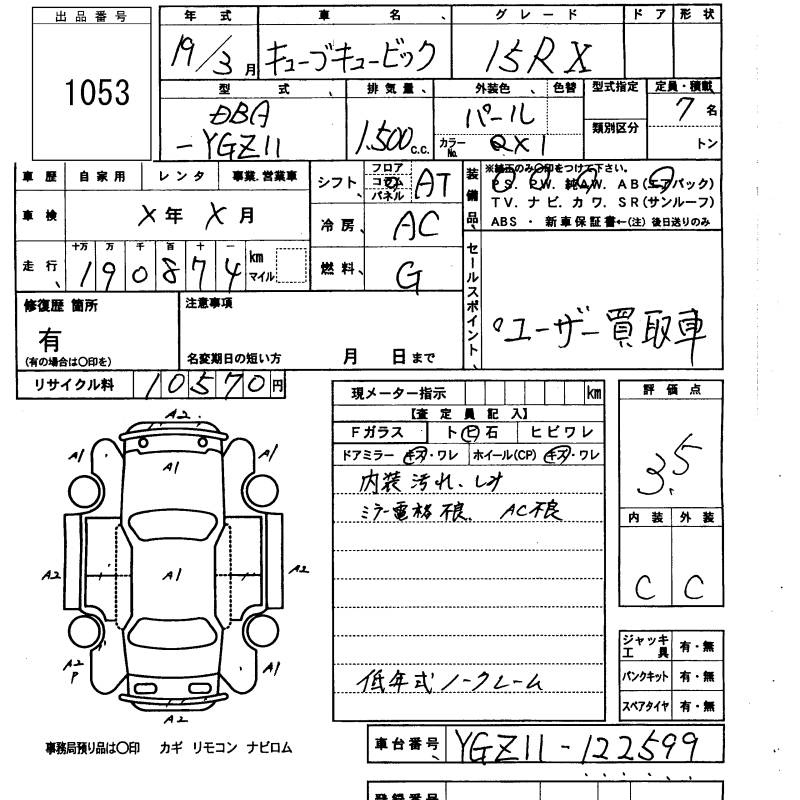 出品番号
1053
年式 車名、 グレード ドア 形状
19/3月 キューブキュービック 15RX
型式、 排気量、 外装色、 色替 型式指定 定員・積載
DBA
-YGZ11 1.500c.c. パール 7名
カラーNo. QX1 類別区分 トン
車歴 自家用 レンタ 事業.営業車
車検 X年 X月
走行、 十万 万 千 百 十 一
190874 km マイル
シフト、 フロア コラム パネル AT
冷房、 AC
燃料、 G
装備品、
※純正のみ〇印をつけて下さい。
PS. PW. 純AW. AB(エアバック)
TV. ナビ. カワ. SR(サンルーフ)
ABS ・ 新車保証書←(注)後日送りのみ
セールスポイント、
ユーザー買取車
修復歴 箇所
有
(有の場合は〇印を)
注意事項
名変期日の短い方 月 日まで
リサイクル料 10570円
現メーター指示 km
【査定員記入】
Fガラス ト㋪石 ヒビワレ
ドアミラー キズ・ワレ ホイール(CP) キズ・ワレ
内装汚れ、シミ
ミラー電格不良、 AC不良
低年式ノークレーム
評価点
3.5
内装 外装
C C
ジャッキ工具 有・無
パンクキット 有・無
スペアタイヤ 有・無
A2
A1 A1 A1
A2 A1 A2
A2
P A1
A2
事務局預り品は〇印 カギ リモコン ナビロム
車台番号、 YGZ11-122599
登録番号